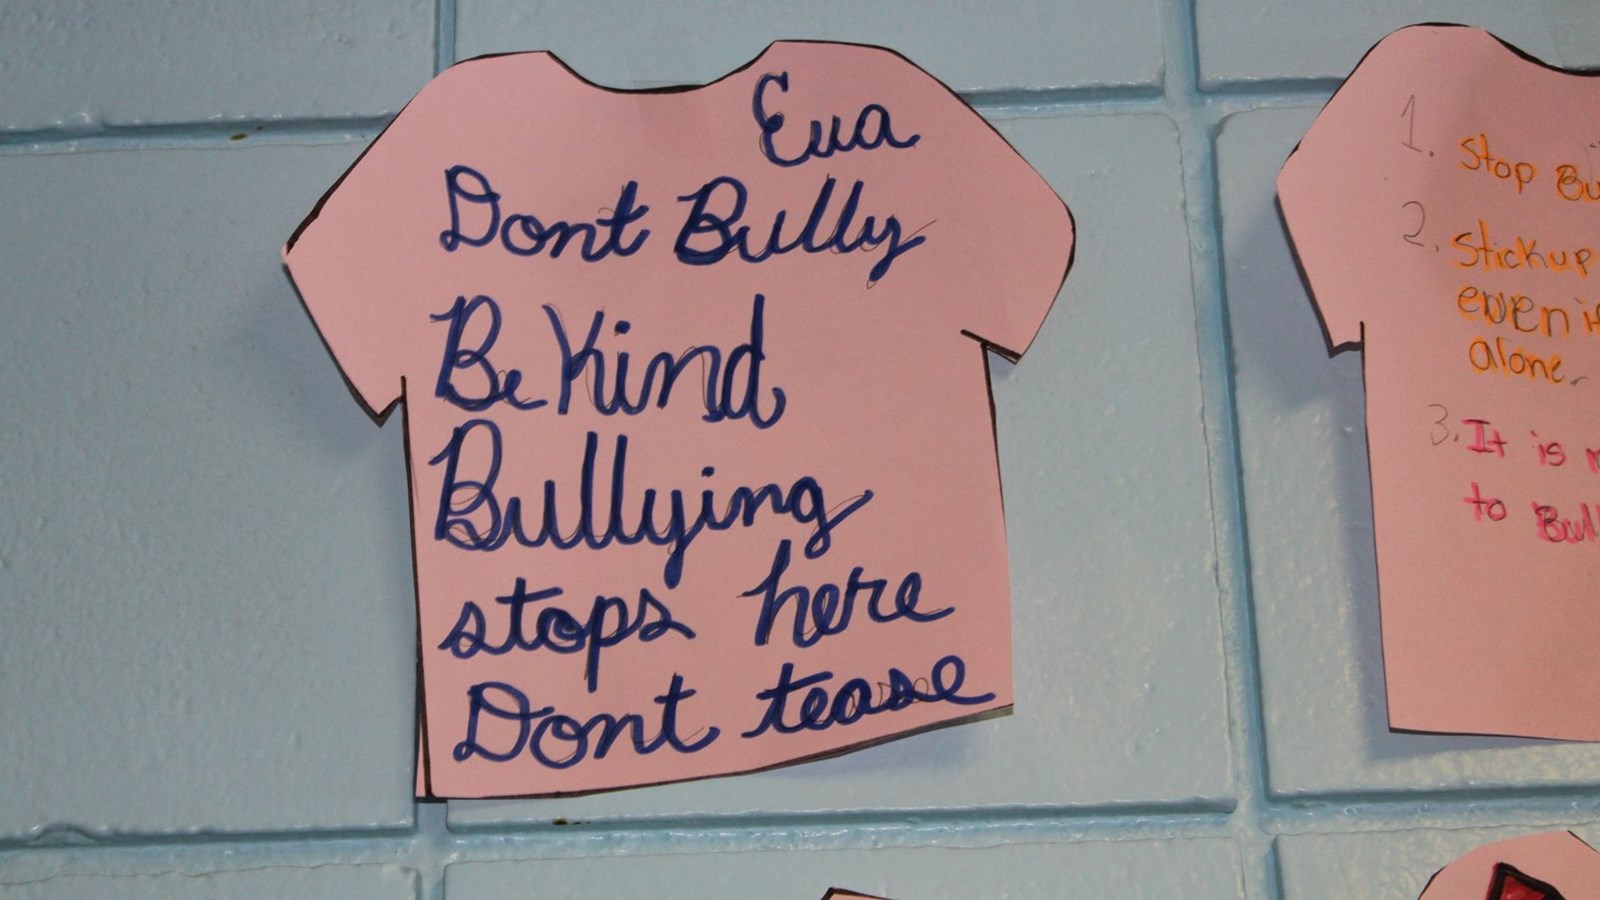 Eva
Dont Bully
Be Kind
Bullying
stops here
Dont tease
1. Stop
2. Stick up
even if
alone.
3. It is
to